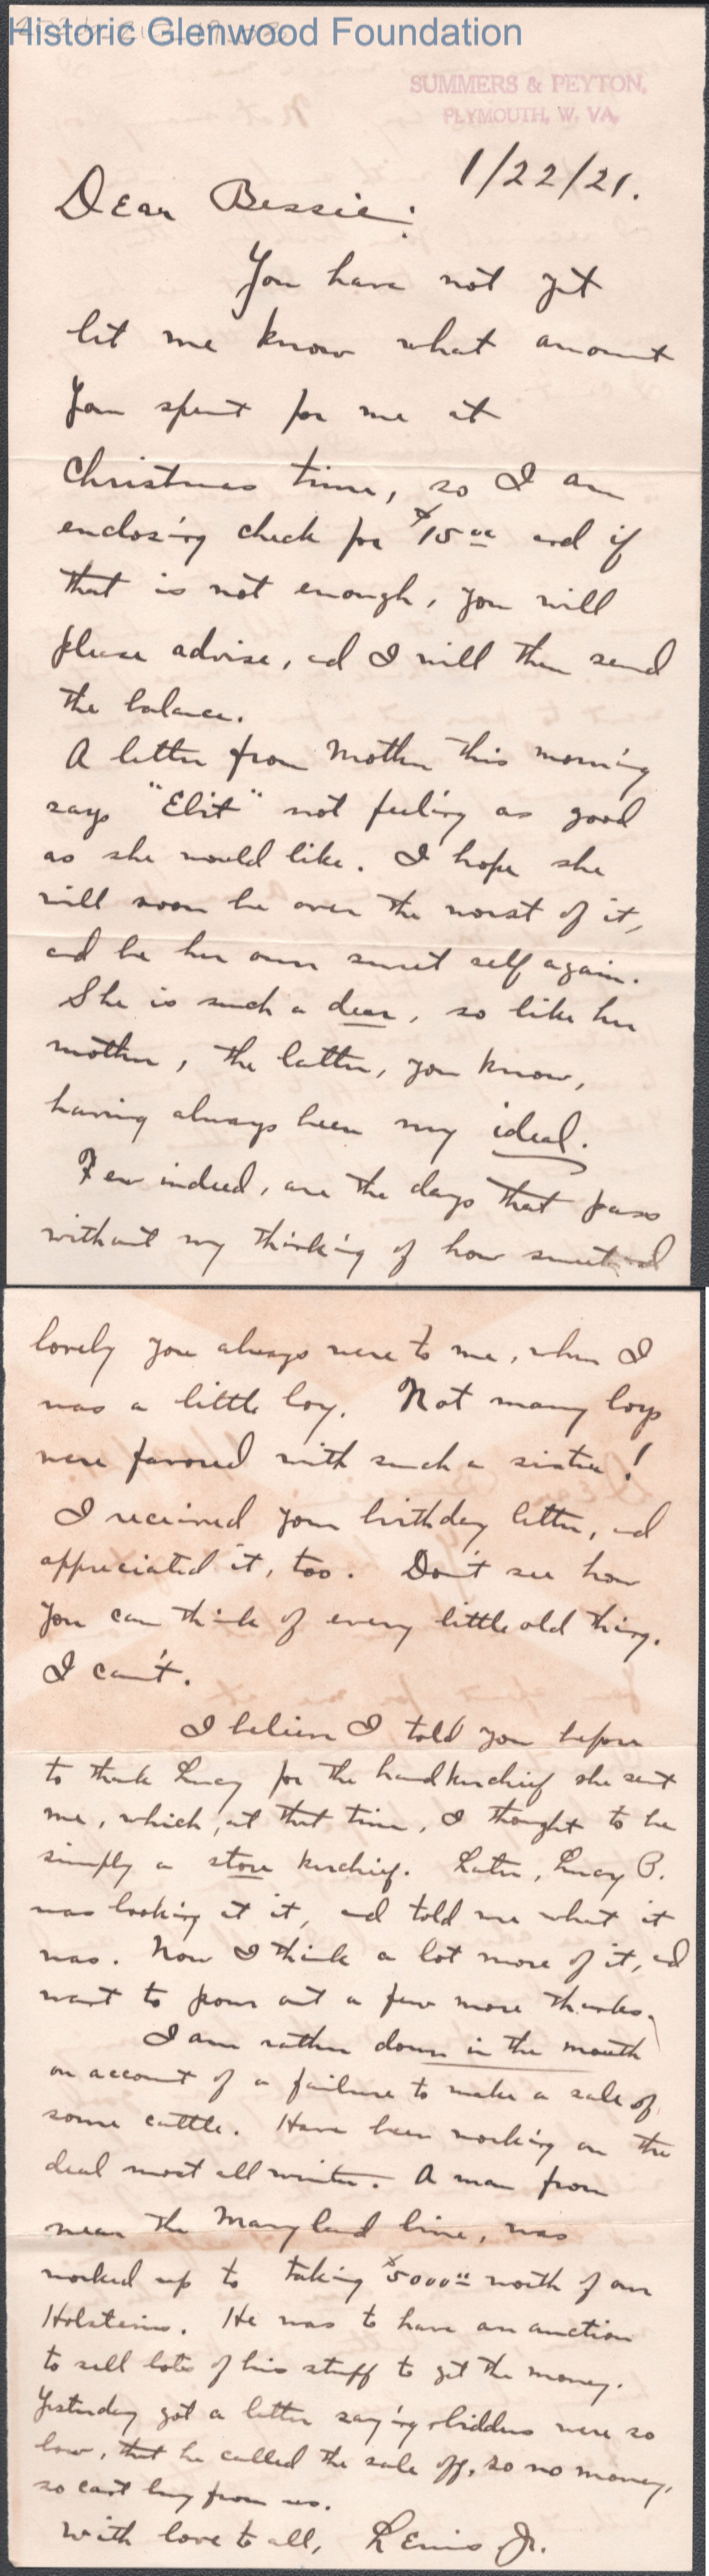 Historic Glenwood Foundation
SUMMERS & PEYTON,
PLYMOUTH, W. VA.
1/22/21.
Dear Bessie:
You have not yet
let me know what amount
you spent for me at
Christmas time, so I am
enclosing check for $15.00 and if
that is not enough, you will
please advise, and I will then send
the balance.
A letter from Mother this morning
says "Ebit" not feeling as good
as she would like. I hope she
will soon be over the worst of it,
and be her own sweet self again.
She is such a dear, so like her
mother, the latter, you know,
having always been my ideal.
Few indeed, are the days that pass
without my thinking of how sweet and
lovely you always were to me, when I
was a little boy. Not many boys
were favored with such a sister!
I received your birthday letter, and
appreciated it, too. Don't see how
you can think of every little old thing.
I can't.
I believe I told you before
to thank Lucy for the handkerchief she sent
me, which, at that time, I thought to be
simply a store kerchief. Later, Lucy B.
was looking at it, and told me what it
was. Now I think a lot more of it, and
want to pour out a few more thanks.
I am rather down in the mouth
on account of a failure to make a sale of
some cattle. Have been working on the
deal most all winter. A man from
near the Maryland line, was
worked up to taking $5000.00 worth of our
Holsteins. He was to have an auction
to sell lots of his stuff to get the money.
Yesterday got a letter saying bidders were so
low, that he called the sale off, so no money,
so can't buy from us.
With love to all, Lewis Jr.